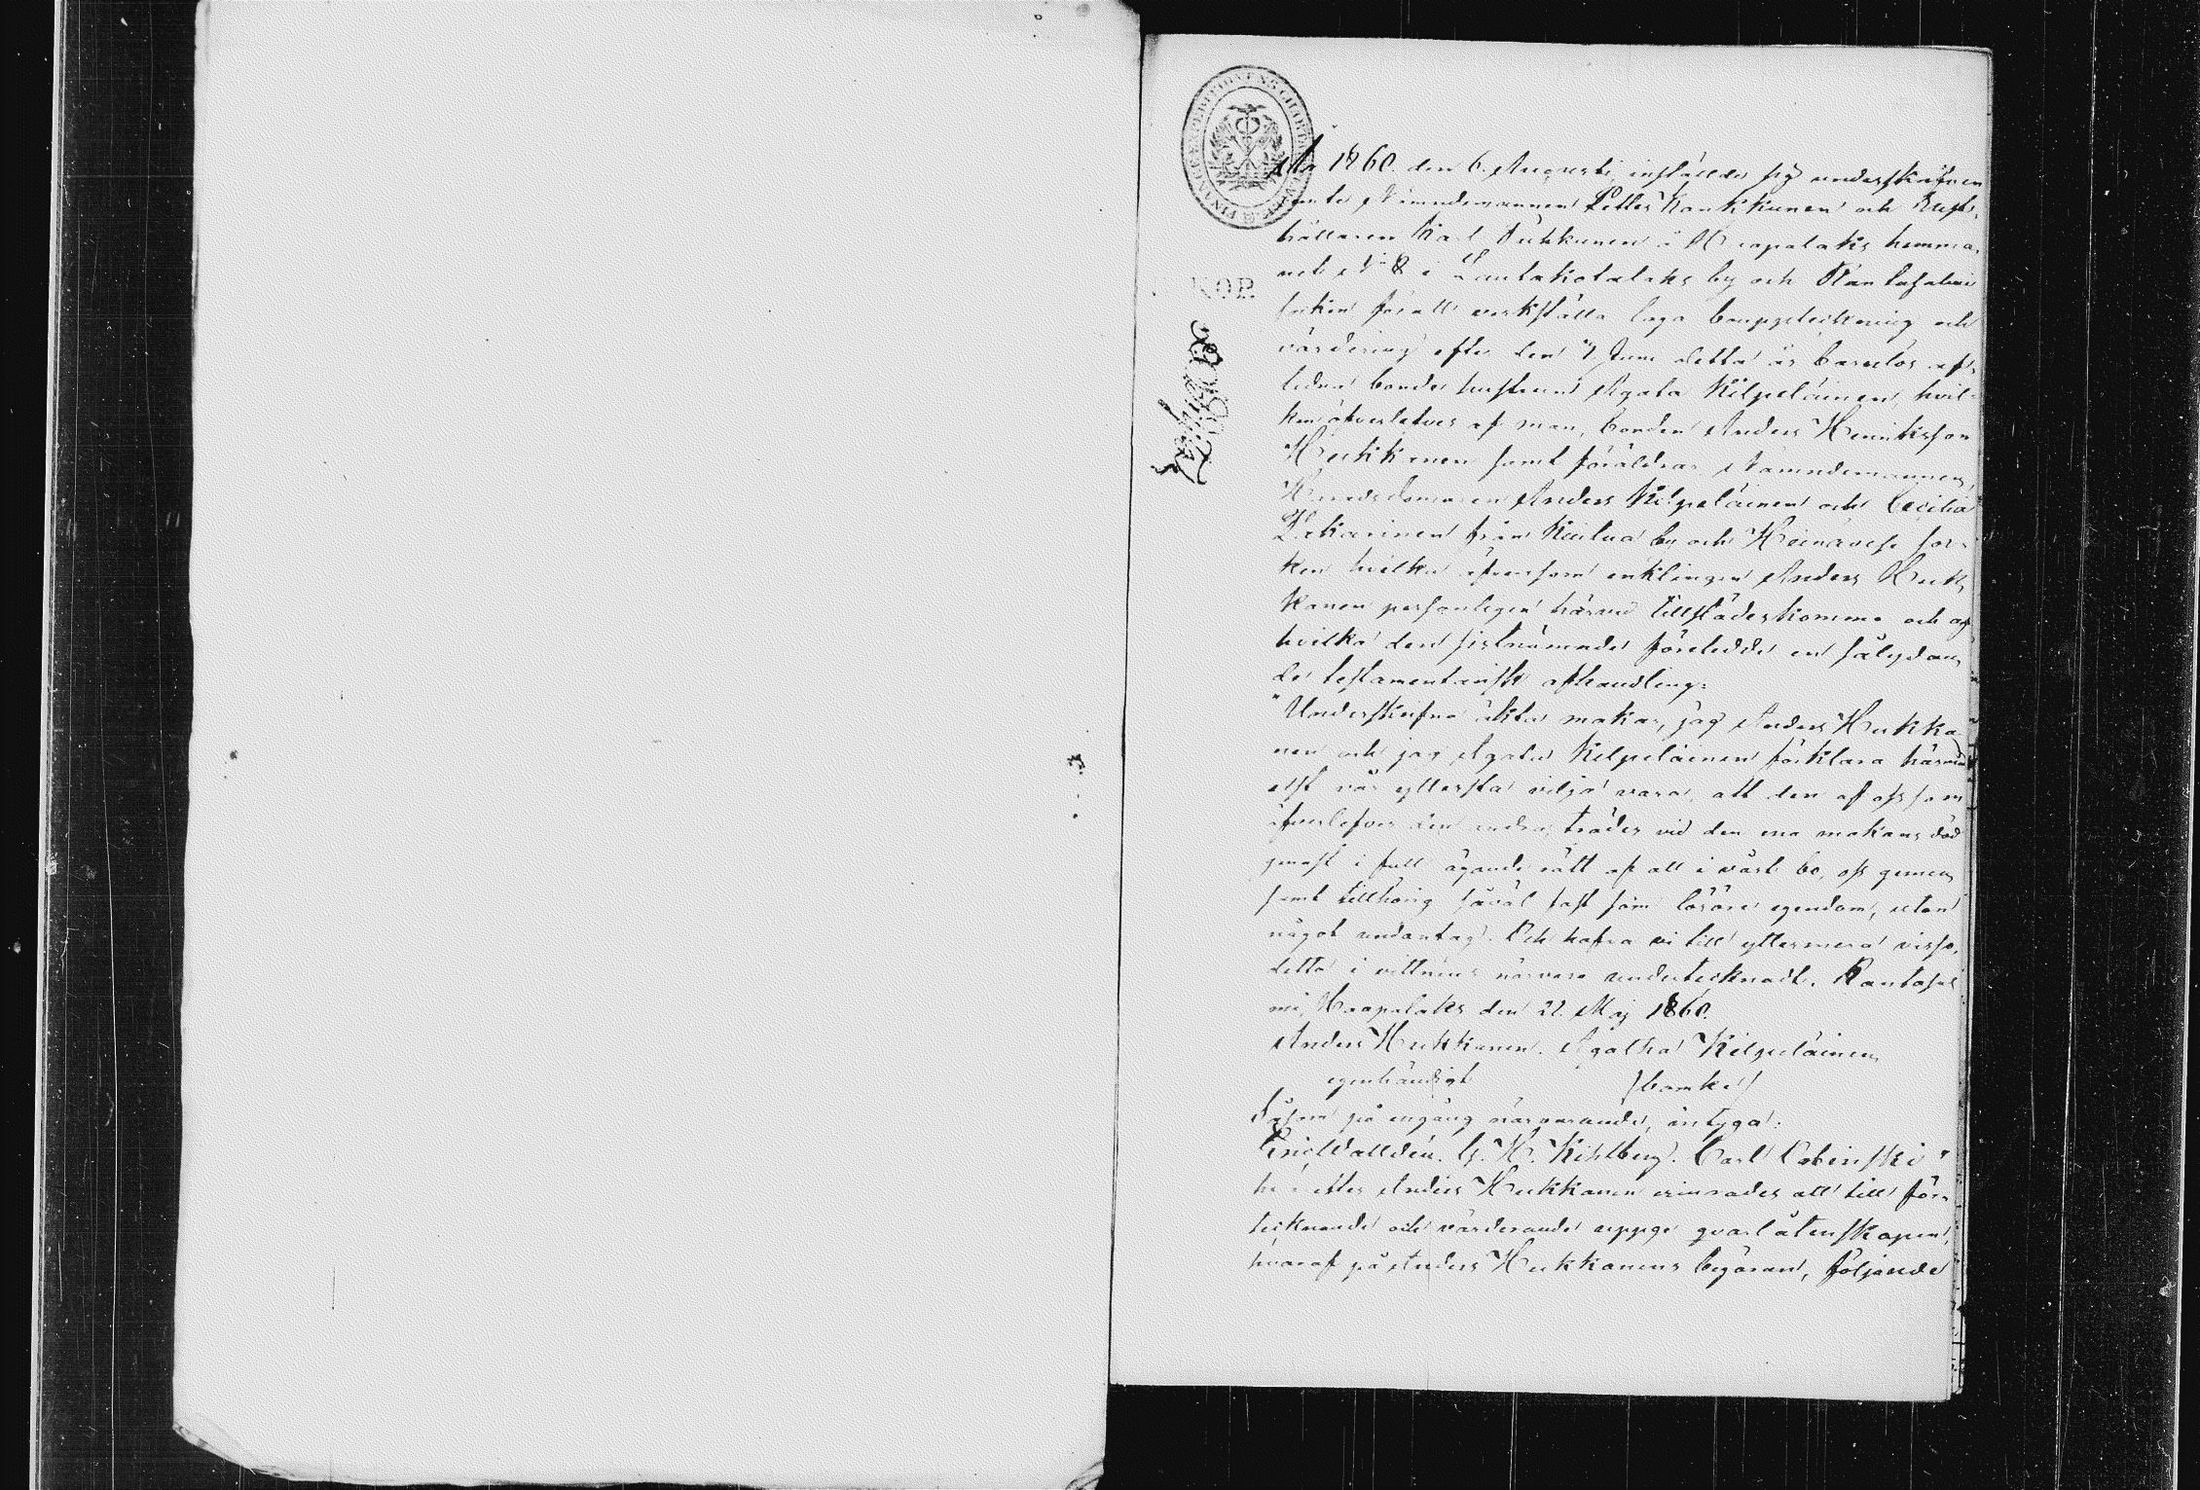 KOP.
År 1860 den 6 Augusti, inställde sig underskrifven
jemte Nämndemannen Petter Kankkunen och Rust-
hållaren Karl Puhkunen å Haapalaks hemma-
net N 8 i Lautakotalaks by och Rantasalmi
socken för att verkställa laga bouppteckning och
värdering efter den 7 Juni detta år barnlös af-
lidna bonde hustrun Agata Kilpeläinen, hvil-
ken öfverlefves af man, bonden Anders Henriksson
Hukkanen samt föräldrar Nämndemannen,
Häradsdomaren Anders Kilpeläinen och Cecilia
från by och Heinävesi soc-
ken hvilka äfvensom enklingen Anders Huk-
kanen personligen härvid tillstädeskommo och af
hvilka den sistnämnde företedde en sålydan-
de testamentarisk afhandling:
"Underskrifne äkta makar, jag Anders Hukka-
nen och jag Agata Kilpeläinen förklara härmed
vår yttersta vilja vara, att den af oss som
öfverlefver den andra, träder vid den ena makans död
genast i full äganderätt af all i vårt bo, oss gemen-
samt tillhörig såväl fast som lösöre egendom, utan
något undantag. Och hafva vi till yttermera visso,
detta i vittnens närvaro undertecknadt. Rantasal-
mi, Haapalaks den 22 Maj 1860.
Anders Hukkanen. Agatha Kilpeläinen
egenhändigt (bomke)
Såsom på engång närvarande, intyga:
Eric Walldén. G. H. Kihlberg. Carl Orbinski"
hvarefter Anders Hukkanen erinrades att till för-
tecknande och värderande uppge qvarlåtenskapen,
hvaraf på Anders Hukkanens begäran, följande